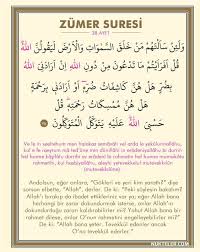 ZÜMER SURESİ
38.AYET
وَلَئِنْ سَاَلْتَهُمْ مَنْ خَلَقَ السَّمٰوَاتِ وَالْاَرْضَ لَيَقُولُنَّ اللّٰهُ
قُلْ اَفَرَاَيْتُمْ مَا تَدْعُونَ مِنْ دُونِ اللّٰهِ اِنْ اَرَادَنِيَ اللّٰهُ
بِضُرٍّ هَلْ هُنَّ كَاشِفَاتُ ضُرِّهِ اَوْ اَرَادَنِي بِرَحْمَةٍ
هَلْ هُنَّ مُمْسِكَاتُ رَحْمَتِهِ قُلْ
حَسْبِيَ اللّٰهُ عَلَيْهِ يَتَوَكَّلُ الْمُتَوَكِّلُونَ
Ve le in seeltehum men halakas semâvâti vel arda le yekûlunnallâhu,
kul e fe reeytum mâ ted'ûne min dûnillâhi in erâdeniyallâhu bi durrin
hel hunne kâşifâtu durrihî ev erâdenî bi rahmetin hel hunne mumsikâtu
rahmetih, kul hasbiyallâh, aleyhi yetevekkelul mutevekkilûn
(mutevekkilûne)
Andolsun, eğer onlara, "Gökleri ve yeri kim yarattı?" diye
sorsan elbette, "Allah", derler. De ki: "Peki söyleyin bakalım?
Allah'ı bırakıp da ibadet ettikleriniz var ya; eğer Allah bana
herhangi bir zarar dokundurmak isterse, onlar Allah'ın
dokunduracağı zararı kaldırabilirler mi? Yahut Allah bana bir
rahmet dilese, onlar O'nun rahmetini engelleyebilirler mi?"
De ki: "Allah bana yeter. Tevekkül edenler ancak
O'na tevekkül ederler."
NUKTELER.COM